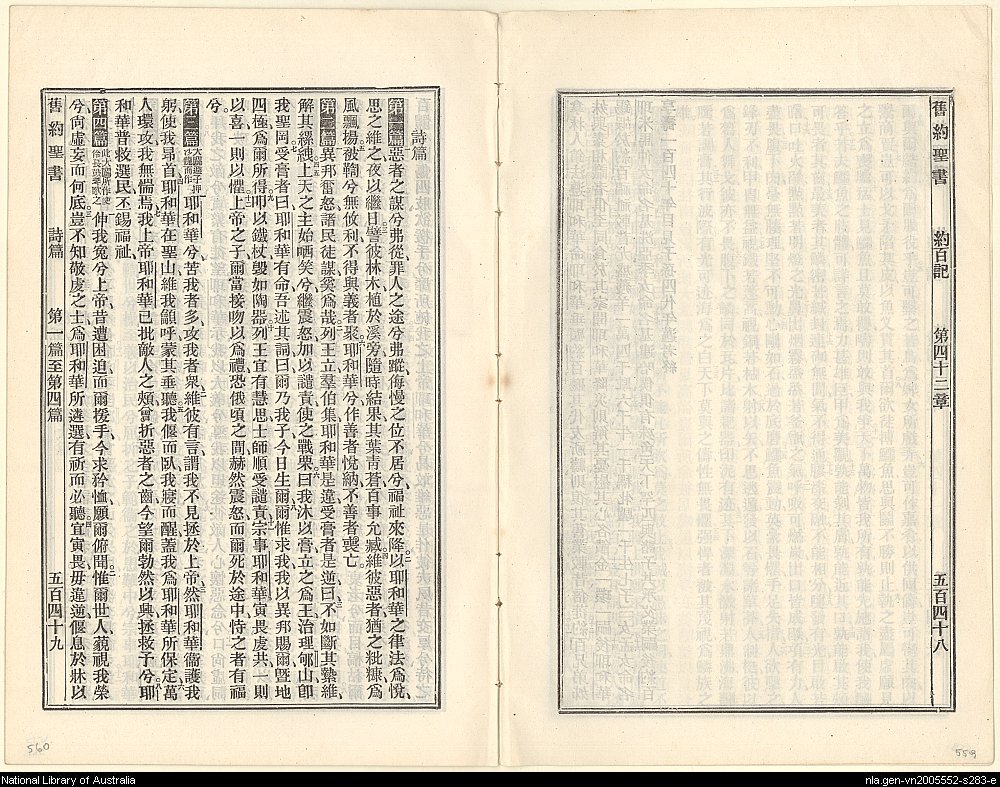 舊約聖書 約百記 第四十二章 五百四十八
詩篇
第一篇 惡者之謀兮弗從罪人之途兮弗蹤侮慢之位不居兮福祉來降二以耶和華之律法爲悅
思之維之夜以繼日三譬彼林木植於溪旁隨時結果其葉靑蒼百事允臧四維彼惡者猶之粃糠爲
風飄揚五被鞫兮無攸利不得與義者聚六耶和華兮作善者悅納不善者喪亡
第二篇 異邦奮怒諸民徒謀奚爲哉二列王立羣伯集耶和華是違受膏者是逆三曰不如斷其縶維
解其縲絏四上天之主始哂笑兮五繼震怒加以譴責使之戰栗六曰我沐以膏立之爲王治理郇山卽
我聖岡七受膏者曰耶和華有命吾述其詞曰爾乃我子今日生爾八爾惟求我我以異邦賜爾曁地
四極爲爾所得九叩以鐵杖毀如陶器十列王宜有慧思士師順受譴責十一宗事耶和華寅畏虔共一則
以喜一則以懼十二上帝之子爾當接吻以爲禮恐俄頃之間赫然震怒而爾死於途中恃之者有福
兮
第三篇 大闢避子押沙龍而作 耶和華兮苦我者多攻我者衆二維彼有言謂我不見拯於上帝三然耶和華衞護我
躬使我昂首四耶和華在聖山維我籲呼蒙其垂聽五我偃而臥我寢而醒蓋我爲耶和華所保六定萬
人環攻我無惴焉七我上帝耶和華已批敵人之頰曾折惡者之齒今望爾勃然以興拯救予兮八耶
和華普救選民丕錫福祉
第四篇 此大闢所作使伶長鼓琴歌之 伸我冤兮上帝昔遭困迫而爾援手今求矜恤願爾俯聞二惟爾世人藐視我榮
兮尙虛妄而何底三豈不知敬虔之士爲耶和華所遴選有祈而必聽四宜寅畏毋違逆偃息於牀以
舊約聖書 詩篇 第一篇至第四篇 五百四十九
560
559
National Library of Australia
nla.gen-vn2005552-s283-e